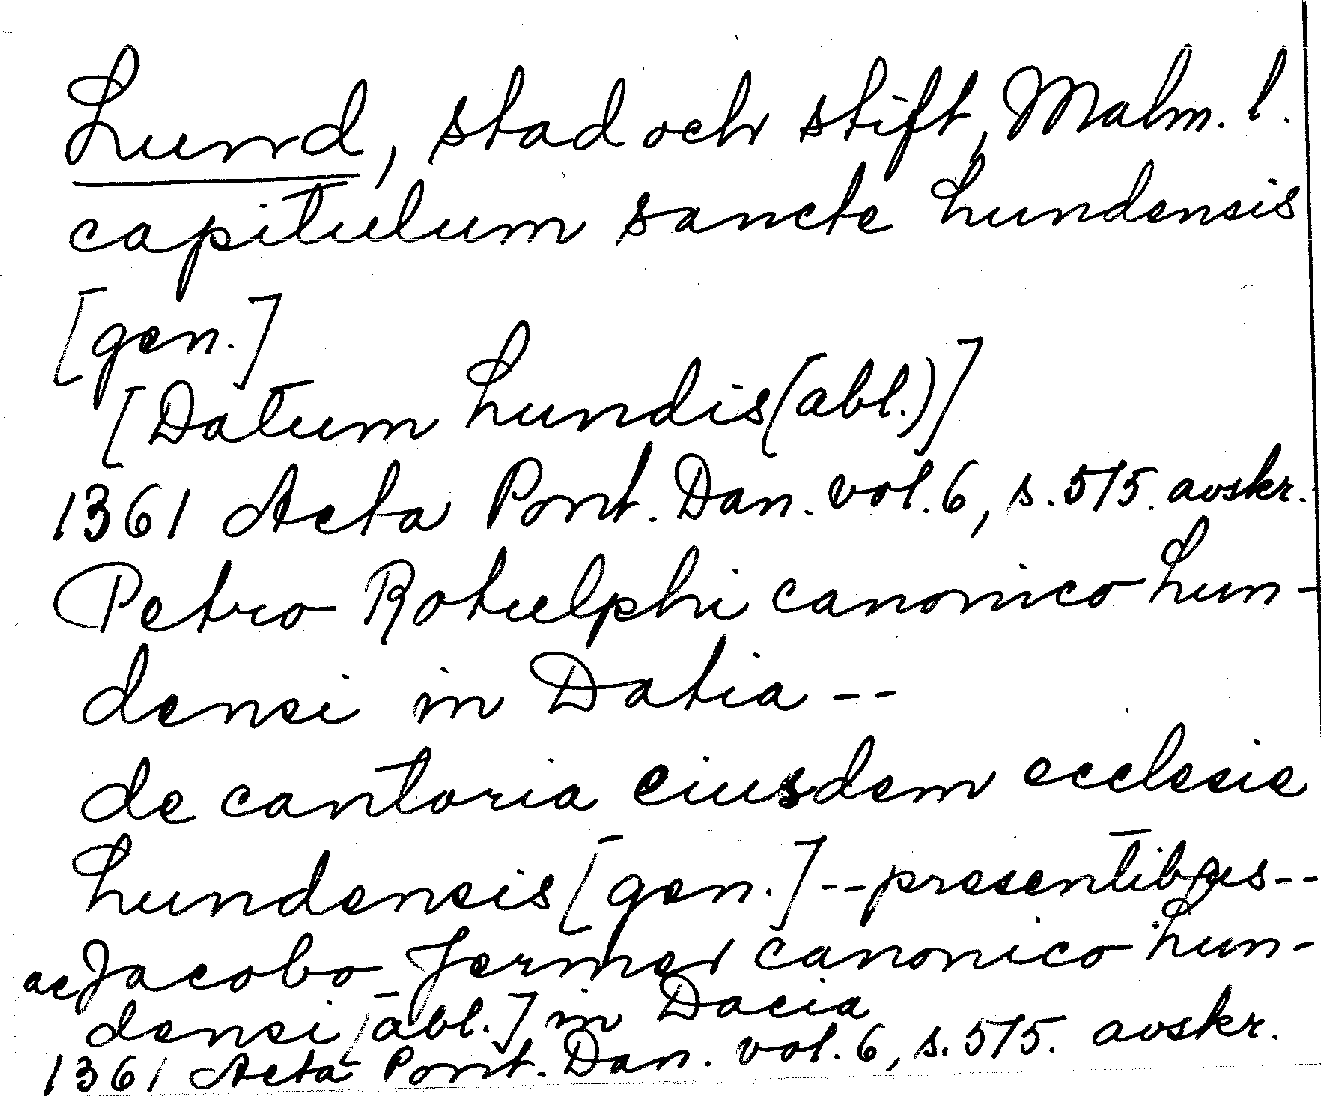 Lund, stad och stift, Malm. l.
capitulum sancte Lundensis
[gen.]
[Datum Lundis (abl.)]
1361 Acta Pont. Dan. vol. 6, s. 515. avskr.
Petro Rotulphi canonico Lun-
densi in Datia --
de cantoria eiusdem ecclesie
Lundensis [gen.] -- presentibus --
ac Jacobo canonico Lun-
densi [abl.] in Dacia
1361 Acta Pont. Dan. vol. 6, s. 515. avskr.